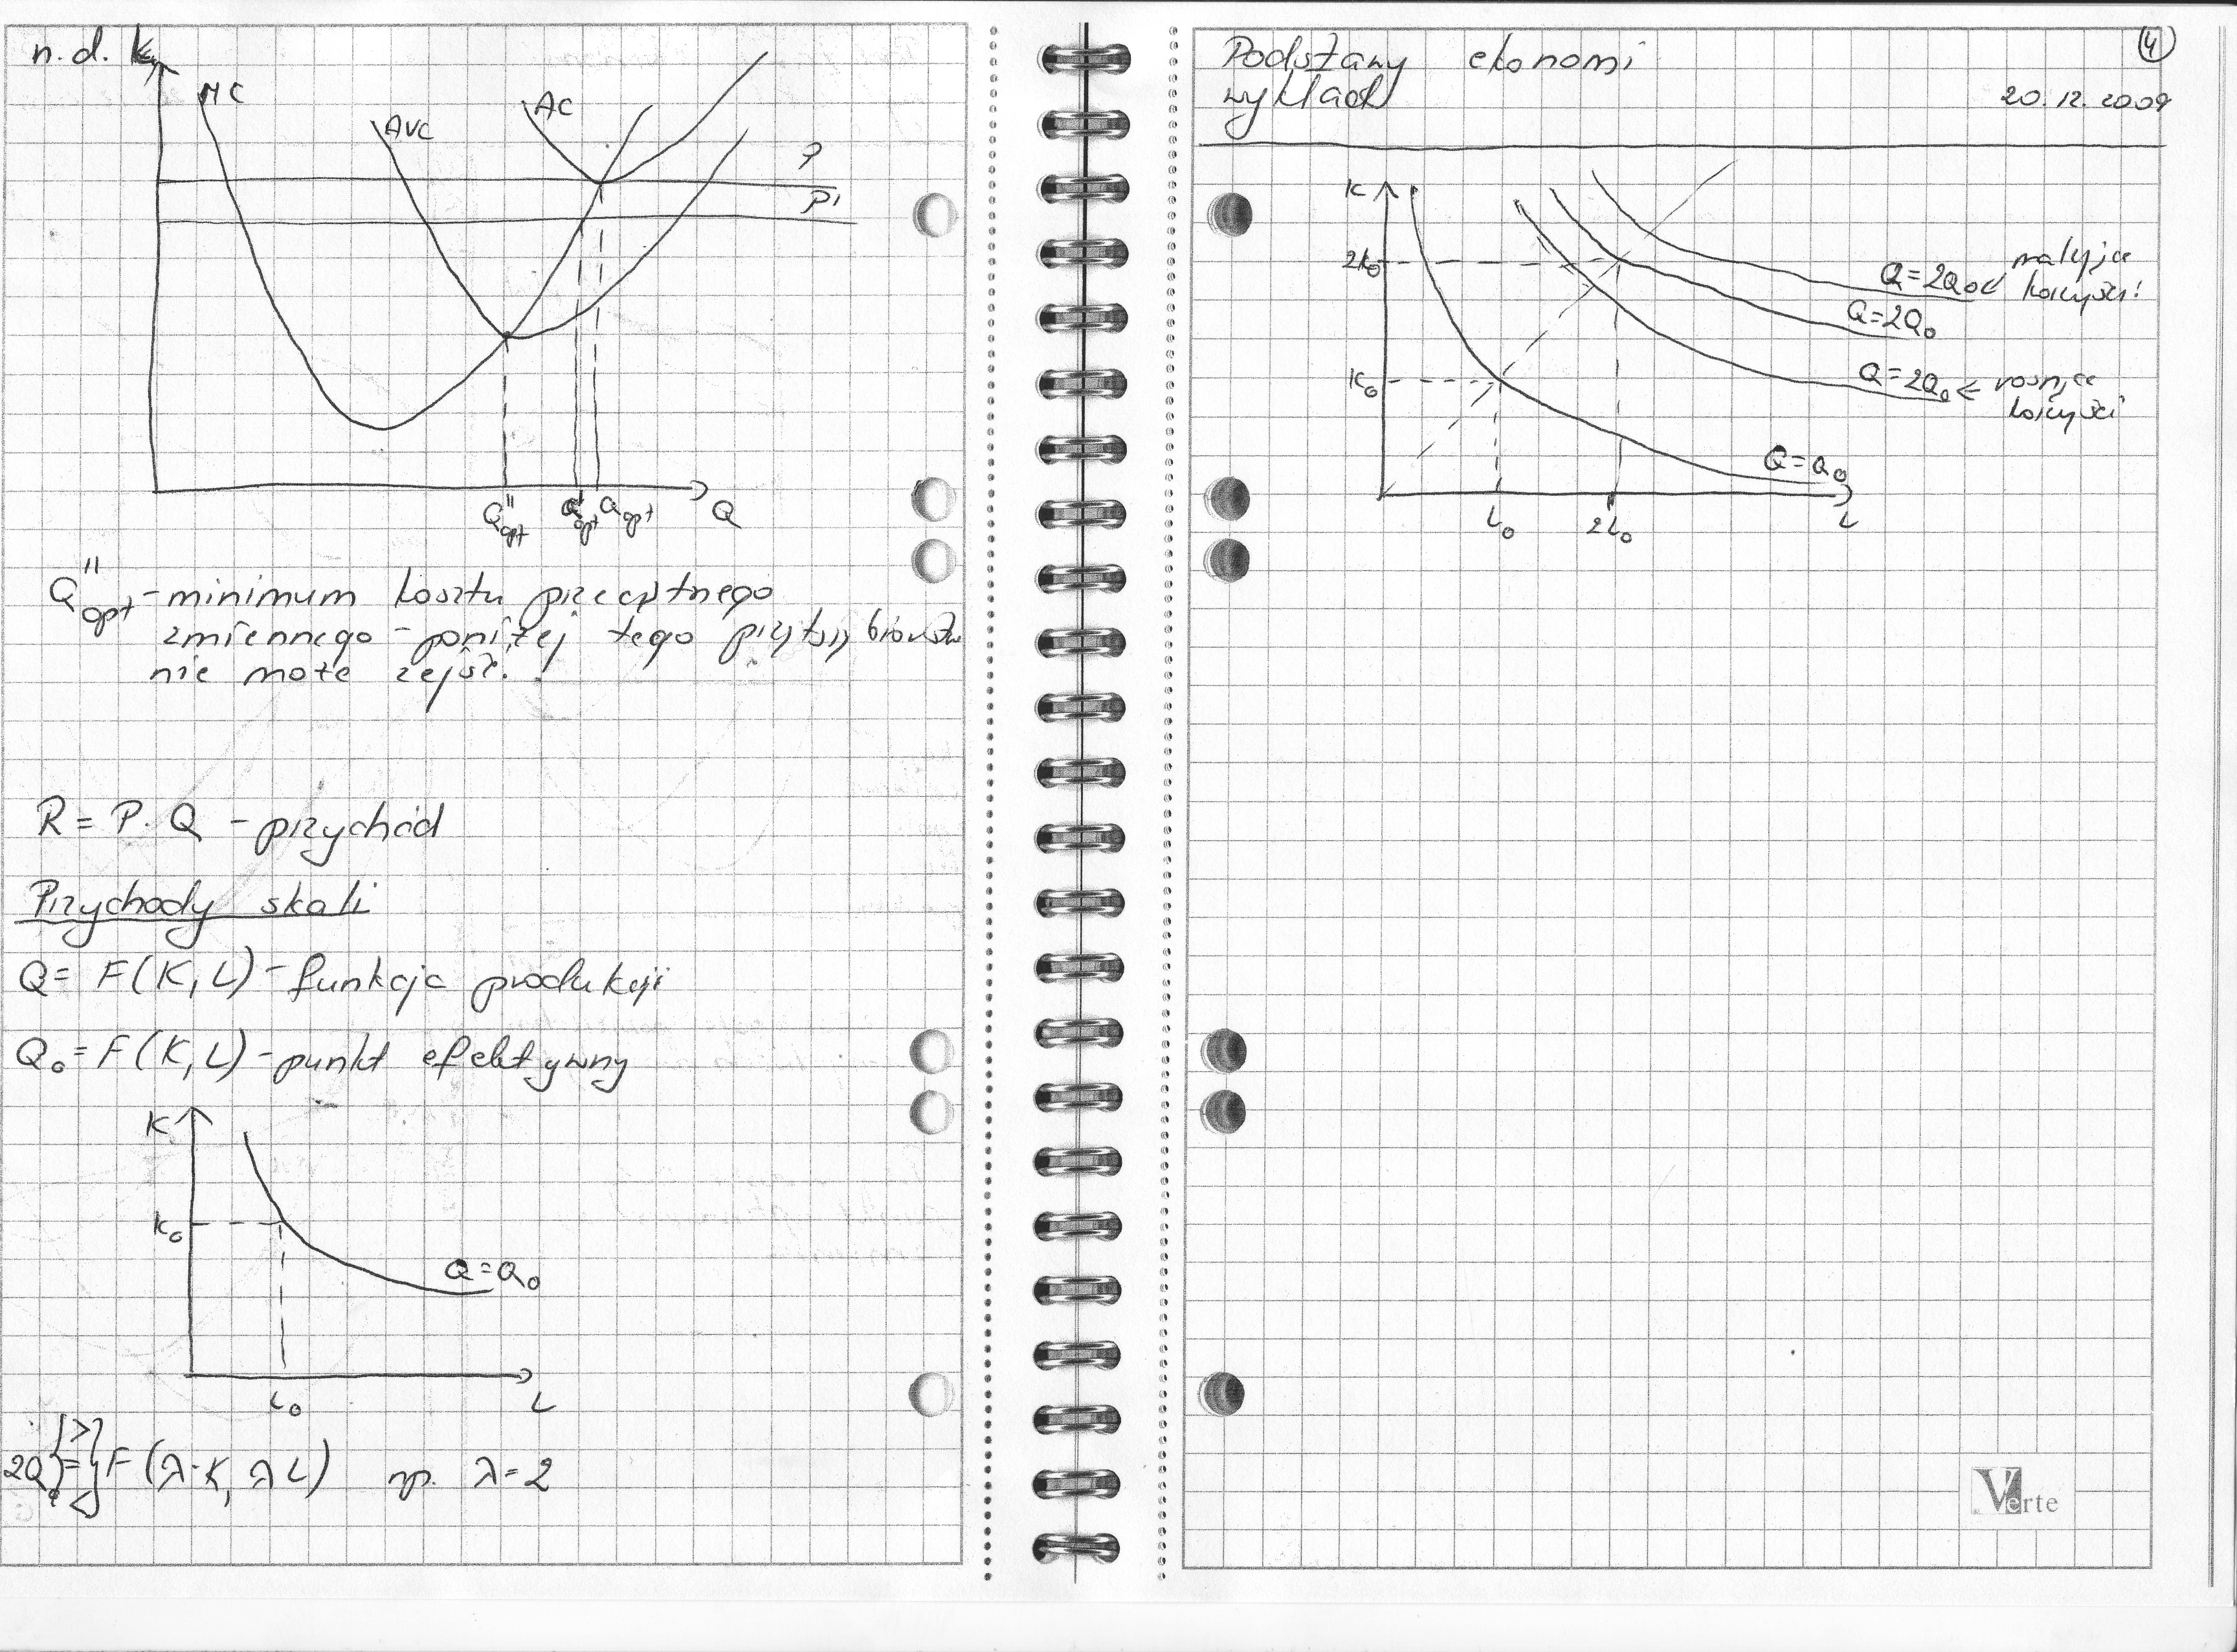 n.d.
MC
AVC
AC
P
P'
Q"opt Q'opt Qopt Q
Q"opt - minimum kosztu przeciętnego
zmiennego - poniżej tego przedsiębiorstwo
nie może zejść!
R = P · Q - przychód
Przychody skali
Q = F(K, L) - funkcja produkcji
Q₀ = F(K, L) - punkt efektywny
K
K₀
Q = Q₀
L₀ L
2Q₀ {> = <} F(λ·K, λL) np. λ = 2
4
Podstawy ekonomi
wykład
20.12.2009
K
2K₀
K₀
Q = 2Q₀ < malejące
korzyści!
Q = 2Q₀
Q = 2Q₀ < rosnące
korzyści
Q = Q₀
L₀ 2L₀ L
Verte